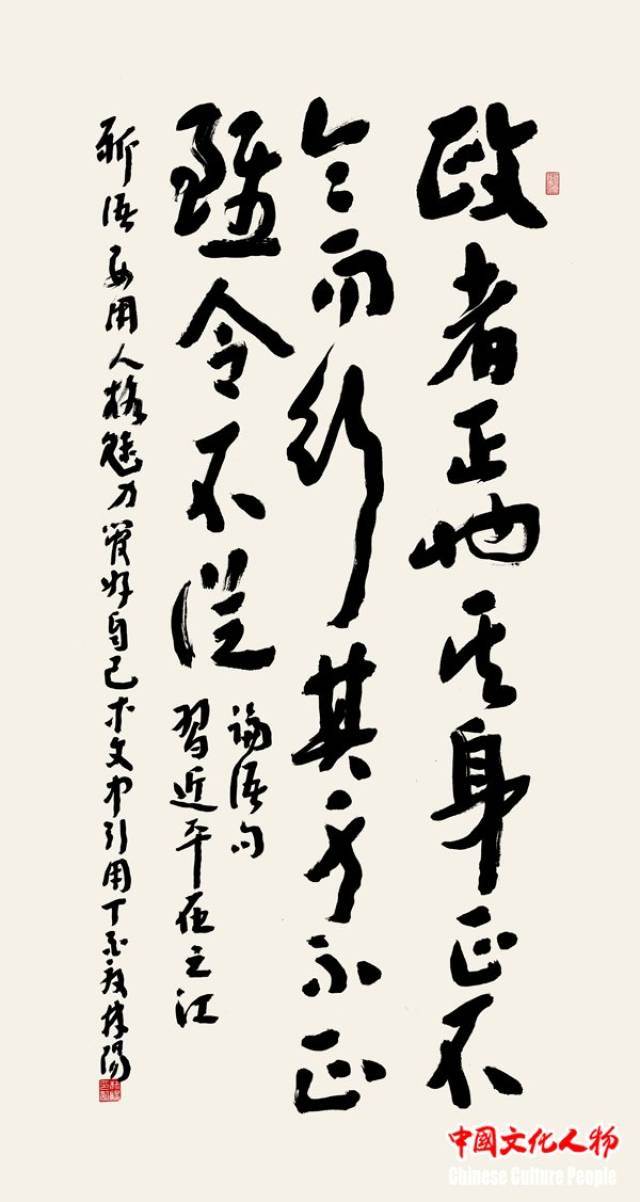 政者正也其身正不
令而行其身不正
雖令不從
論語句
習近平在之江
新語要用人格魅力管好自己本文中引用丁酉夏林陽
中國文化人物
Chinese Culture People